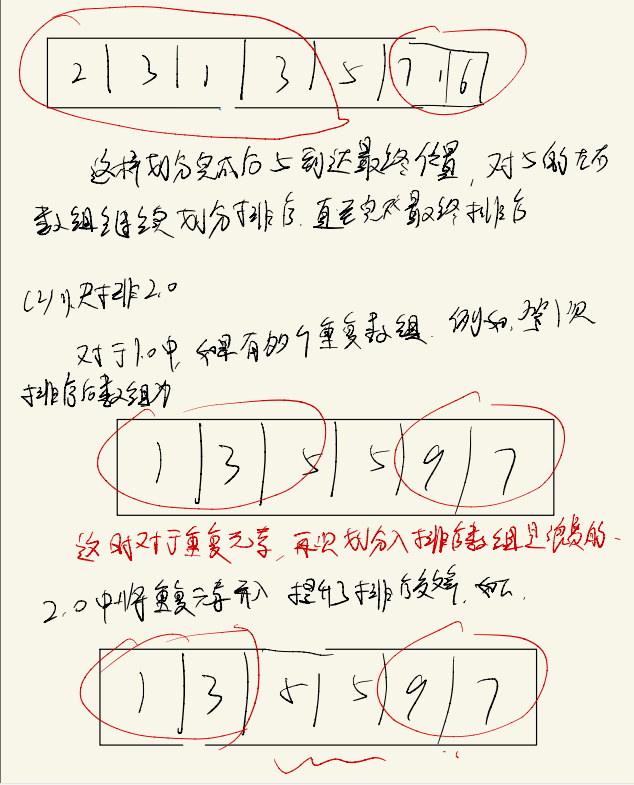 2 3 1 3 5 7 1 6
这样划分完成后5到达最终位置,对5的左右
数组继续划分排序.直至完成最终排序
(2)快排2.0
对于1.0中,如果有多个重复数组.例如,第1次
排序后数组为
1 3 5 5 9 7
这时对于重复元素,再次划分入排序数组是浪费的.
2.0中将重复元素 提升了排序效率.如下.
1 3 5 5 9 7